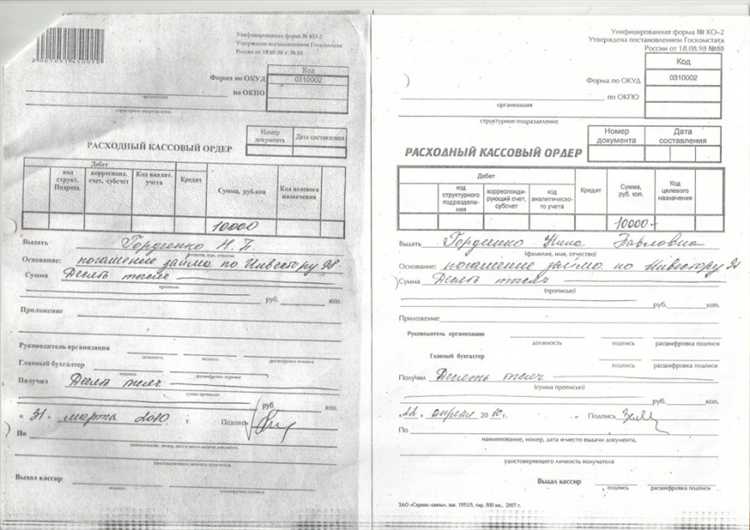 Унифицированная форма № КО-2
Утверждена постановлением Госкомстата
России от 18.08.98 г. №88
Код
Форма по ОКУД 0310002
по ОКПО
организация
структурное подразделение
Номер документа Дата составления
РАСХОДНЫЙ КАССОВЫЙ ОРДЕР
Дебет
код структ. Подразд.
корреспонд. счет, субсчет
Код аналит. учета
Кредит
Сумма, руб.коп
Код целевого назначения
10000
Выдать Гордиенко Н. П.
Основание: погашение займа по Инвестору 98
Сумма Десять тысяч
прописью
руб. коп.
Приложение
Руководитель организации
должность подпись расшифровка подписи
Главный бухгалтер
подпись расшифровка подписи
Получил Десять тысяч
сумма прописью
руб. коп.
" 31. марта 2010 г. Подпись
По
наименование, номер, дата и место выдачи документа,
удостоверяющего личность получателя
Выдал кассир
подпись расшифровка подписи
Унифицированная форма № КО-2
Утверждена постановлением Госкомстата
России от 18.08.98 №88
Код
Форма по ОКУД 0310002
по ОКПО
организация
структурное подразделение
Номер документа Дата составления
РАСХОДНЫЙ КАССОВЫЙ ОРДЕР
Дебет
код структурного подразделения
корреспондирующий счет, субсчет
код аналитического учета
Кредит
Сумма, руб. коп.
Код целевого назначения
10000-
Выдать Гордиенко Нина Павловна
(фамилия, имя, отчество)
Основание: погашение займа по Инвестору 98
Сумма Десять тысяч
(прописью)
руб. коп.
Приложение
Руководитель организации
должность подпись расшифровка подписи
Главный бухгалтер
подпись расшифровка подписи
Получил Десять тысяч
(сумма прописью)
руб. коп.
22. апреля 2010 г. Подпись
По
наименование, номер, дата и место выдачи документа,
удостоверяющего личность получателя
Выдал кассир
подпись расшифровка подписи